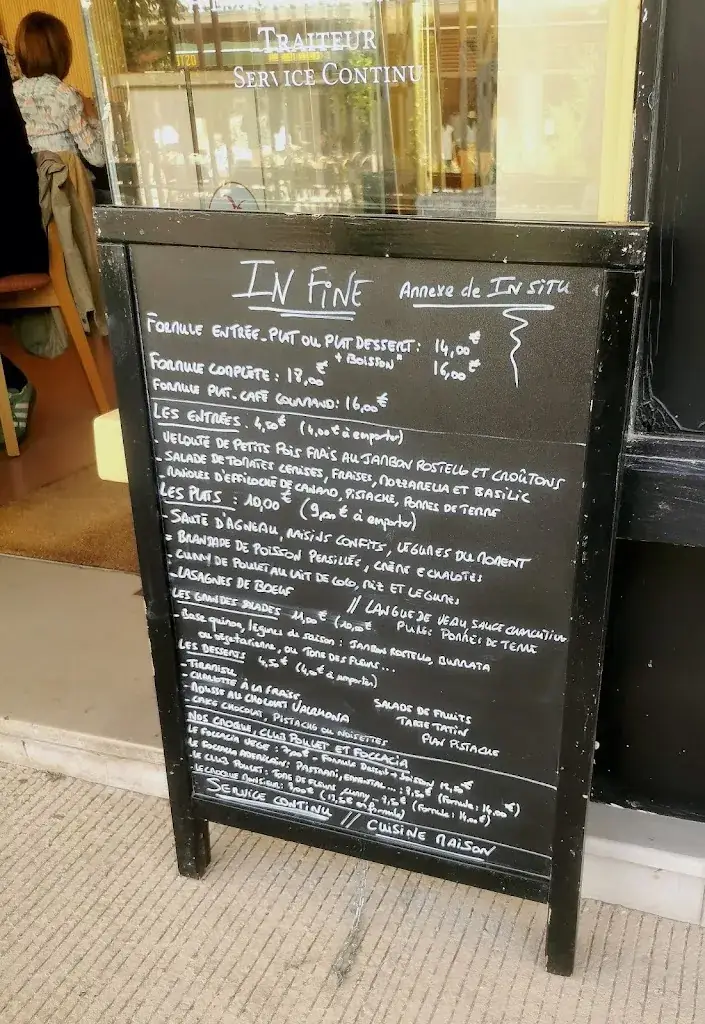 TRAITEUR
SERVICE CONTINU
IN FINE Annexe de IN SITU
FORMULE ENTRÉE-PLAT OU PLAT DESSERT : 14,00€
+ BOISSON" 16,00€
FORMULE COMPLÈTE : 17,00€
FORMULE PLAT-CAFÉ GOURMAND : 16,00€
LES ENTRÉES : 4,50€ (4,00€ à emporter)
- VELOUTÉ DE PETITS POIS FRAIS AU JAMBON ROSTELLO ET CROÛTONS
- SALADE DE TOMATES CERISES, FRAISES, MOZZARELLA ET BASILIC
D'EFFILOCHÉ DE CANARD, PISTACHE, POMMES DE TERRE
LES PLATS : 10,00€ (9,00€ à emporter)
- SAUTÉ D'AGNEAU, RAISINS CONFITS, LÉGUMES DU MOMENT
- BRANDADE DE POISSON PERSILLÉE, CRÈME ECHALOTES
- CURRY DE POULET AU LAIT DE COCO, RIZ ET LÉGUMES
- LASAGNES DE BOEUF // LANGUE DE VEAU, SAUCE CHARCUTIÈRE
PURÉE POMMES DE TERRE
LES GRANDES SALADES 11,00€ (10,00€
- Base quinoa, légumes de saison : JAMBON ROSTELLO, BURRATA
ou végétarienne, ou TOME DES FLEURS...
LES DESSERTS 4,50€ (4,00€ à emporter)
- TIRAMISU
- CHARLOTTE À LA FRAISE SALADE DE FRUITS
- MOUSSE AU CHOCOLAT VALRHONA TARTE TATIN
- CAKE CHOCOLAT, PISTACHE OU NOISETTES FLAN PISTACHE
NOS CROQUE, CLUB POULET ET FOCCACIA
LE FOCCACIA VÉGÉ : - FORMULE DESSERT + BOISSON
LE FOCCACIA AMERICAIN : PASTRAMI, EMMENTAL... : 9,50€ (Formule : 14,00€)
LE CLUB POULET : TOME DE FLEURS CURRY - 9,50€ (Formule : 14,00€)
LE CROQUE MONSIEUR : 9,00€ (13,50€ en formule)
SERVICE CONTINU // CUISINE MAISON